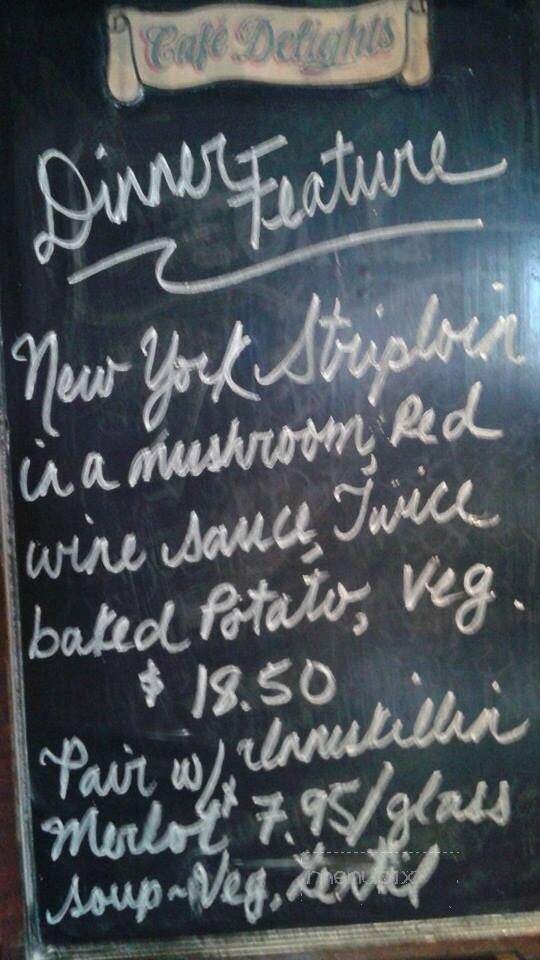 Café Delights
Dinner Feature
New York Striploin
in a mushroom, Red
wine sauce, Twice
baked Potato, Veg.
$ 18.50
Pair w/ Inniskillin
Merlot 7.95/glass
soup~Veg, Lentil
menupix